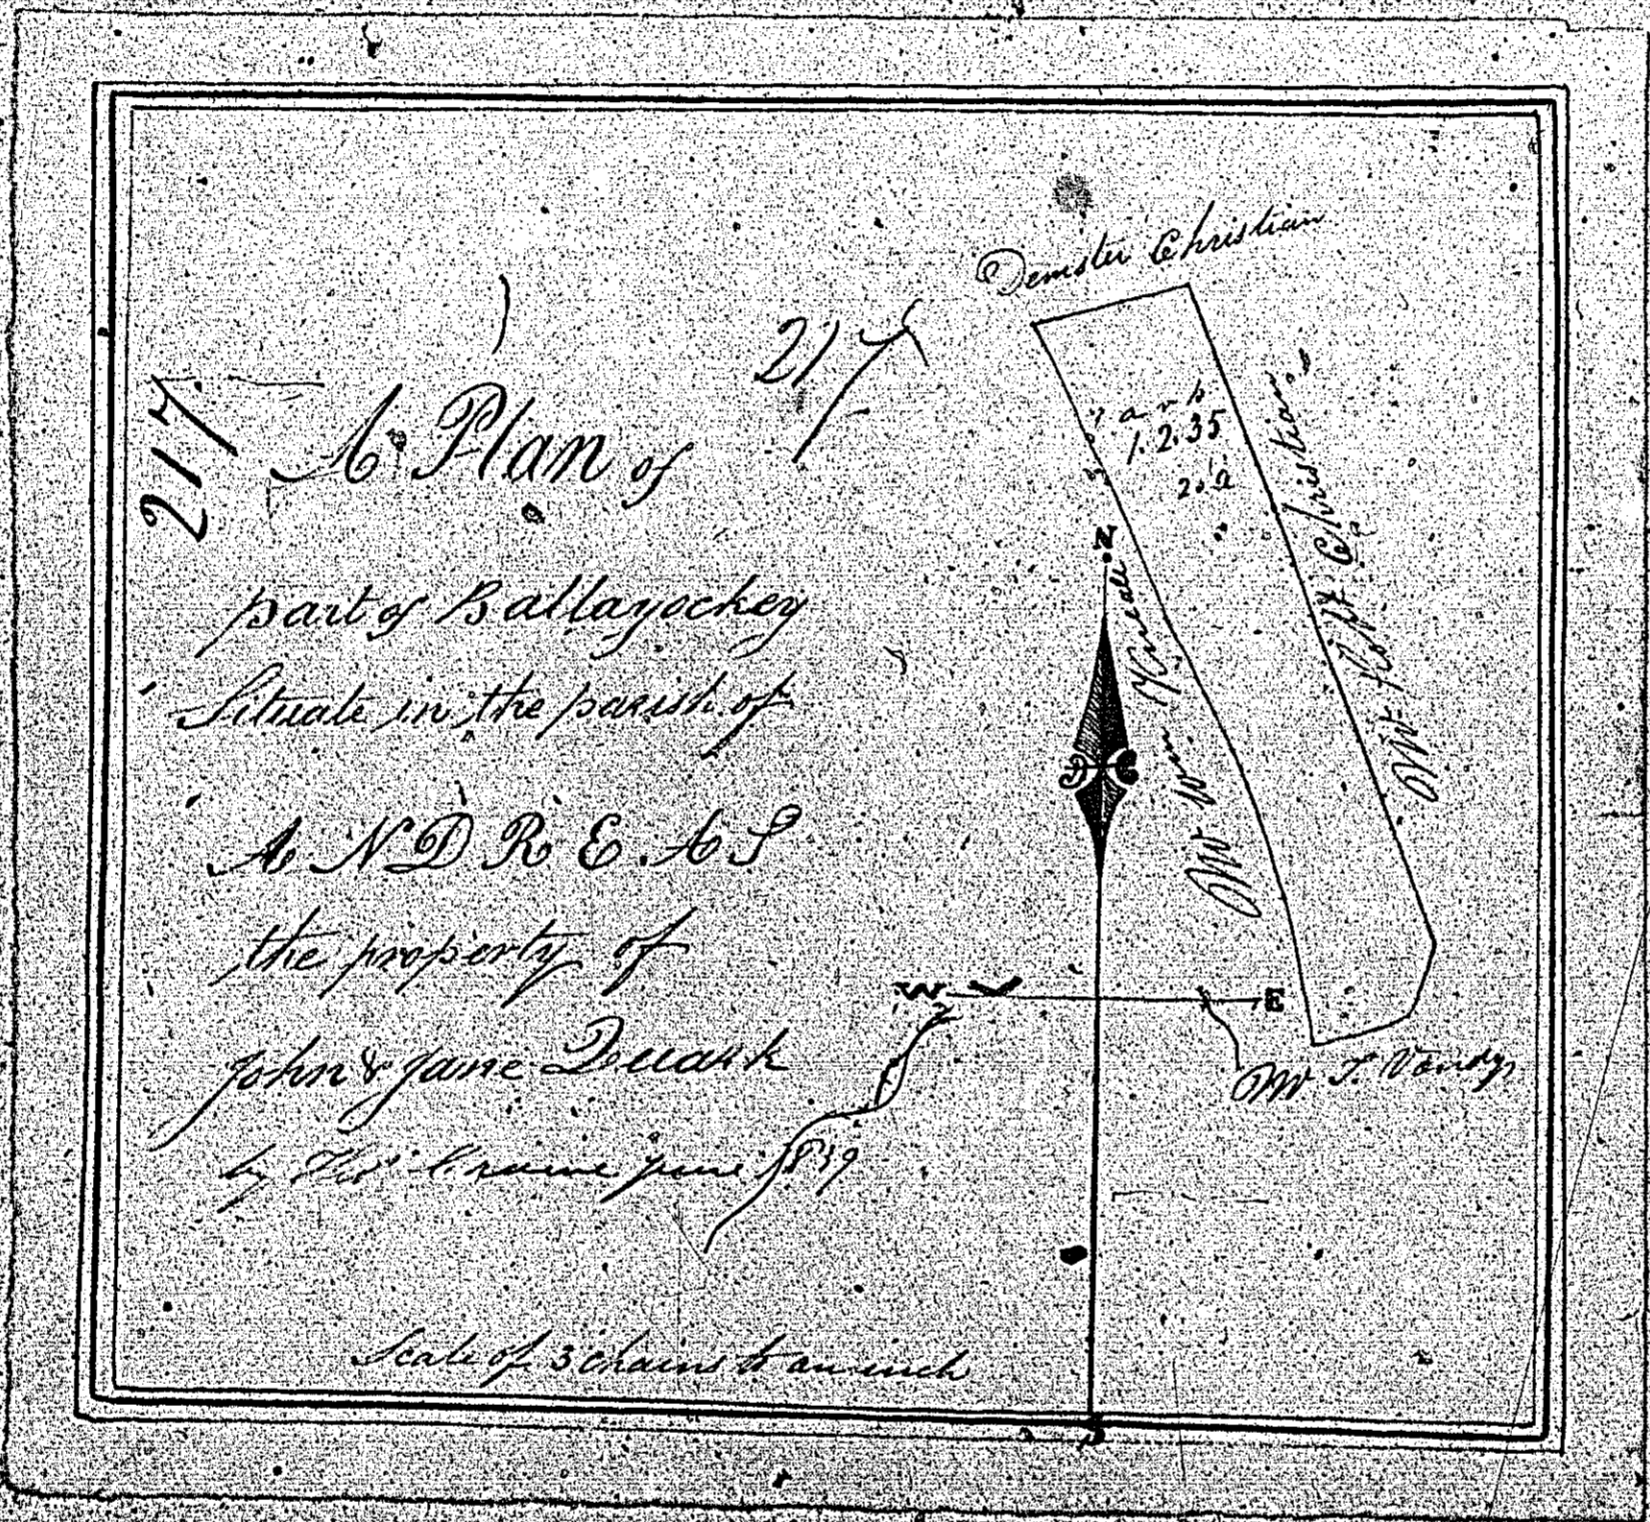 217
217
A Plan of
part of Ballayockey
Situate in the parish of
ANDREAS
the property of
John & Jane Quark
by Thos Craine June 1839
Scale of 3 chains to an inch
Demster Christian
a r p
1.2.35
Mr Robt Christian
Mr Wm Kneale
Mr T. Vondy
N
W
E
S